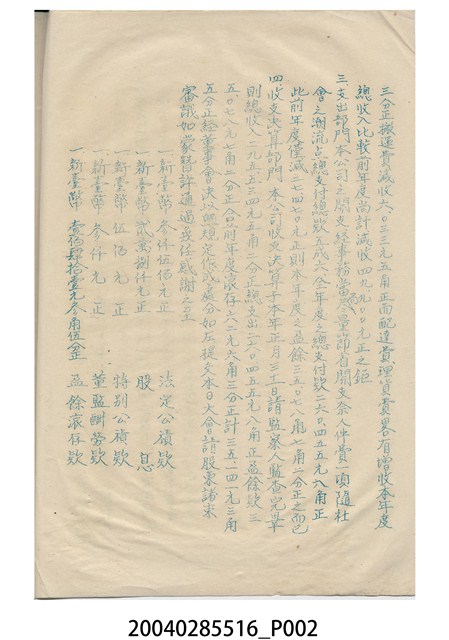 三分正搬運費減收六〇三三元五角正而配達費理貨費畧有增收本年度
總收入比較前年度尚計減收四九九〇〇元正之鉅
三支出部門本公司之開支經事務當局尽量節省開支奈人件費一項隨社
會之潮流占總支付總数五成六全年度之總支付欵二六〇四五五元八角正
比前年度僅減二七四七〇元正則本年度之益餘三五〇八角七角二分正之而已
四收支決算部門 本公司收支決算于本年正月三十日請監察人監查完畢
則總收入二九五五三四元五角二分正總支出二六〇四五五元八角正益餘欵三
五〇七八元七角二分正合前年度滾存六二元六角三分正計三五一四一元三角
五分正經董事會決以照規定作成處分如左提交本日大會請股東諸
審議如蒙贊許通過曷任感謝之至
一新臺幣叁仟伍佰元正 法定公積欵
一新臺幣貳萬捌仟元正 股 息
一新臺幣伍佰元 正 特别公積欵
一新臺幣叁仟元 正 董監酬勞欵
一新臺幣 壹佰肆拾壹元叁角伍分正 益餘滾存欵
20040285516_P002